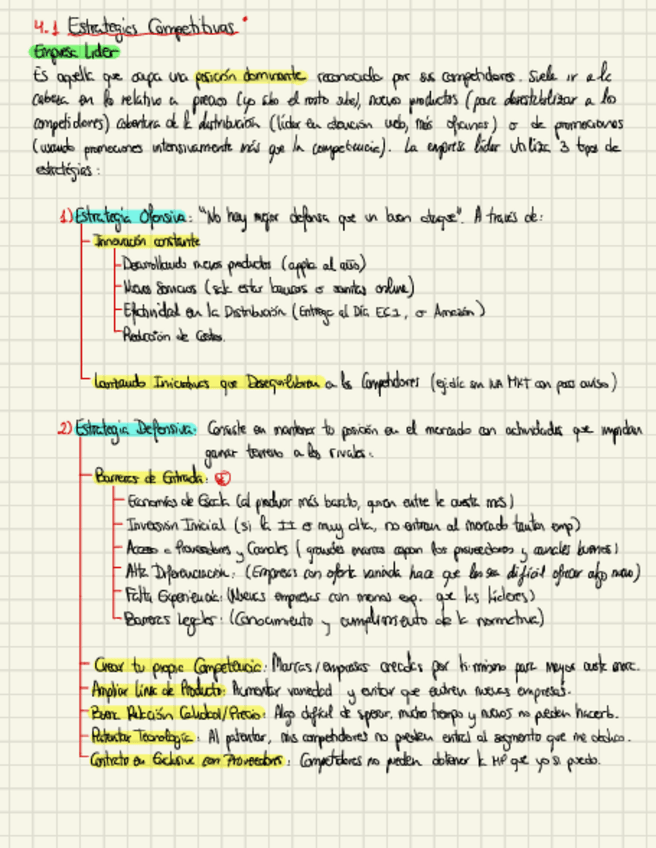 4.1 Estrategias Competitivas
Empresa Lider
Es aquella que ocupa una posición dominante reconocida por sus competidores. Suele ir a la
cabeza en lo relativo a precios (yo subo el resto sube), nuevos productos (para desestabilizar a los
competidores) cobertura de la distribución (líder en atención web, más oficinas) o de promociones
(usando promociones intensivamente más que la competencia). La empresa líder utiliza 3 tipos de
estratégias:
1) Estrategia Ofensiva: "No hay mejor defensa que un buen ataque". A través de:
Innovación constante
Desarrollando nuevos productos (apple al año)
Nuevos Servicios (solo estar bancos o sanitas online)
Efectividad en la Distribución (Entrega al Día ECI, o Amazon)
Reducción de Costes.
Lanzando Iniciativas que Desequilibran a los Competidores (ej: dic sin IVA MKT con poco aviso)
2) Estrategia Defensiva: Consiste en mantener tu posición en el mercado con actividades que impidan
ganar terreno a los rivales.
Barreras de Entrada:
Economías de Escala (al producir más barato, quien entre le cueste más)
Inversión Inicial (si la II es muy alta, no entran al mercado tantas emp)
Acceso a Proveedores y Canales (grandes marcas copan los proveedores y canales buenos)
Alta Diferenciación: (Empresas con oferta variada hace que les sea difícil ofrecer algo nuevo)
Falta Experiencia: (Nuevas empresas con menos exp. que las líderes)
Barreras Legales: (Conocimiento y cumplimiento de la normativa)
Crear tu propia Competencia: Marcas/empresas creadas por ti mismo para mayor cuota merc.
Ampliar Linea de Producto: Aumentar variedad y evitar que entren nuevas empresas.
Buena Relación Calidad/Precio: Algo difícil de superar, mucho tiempo y nuevos no pueden hacerlo.
Patentar Tecnología: Al patentar, mis competidores no pueden entrar al segmento que me dedico.
Contrato en Exclusiva con Proveedores: Competidores no pueden obtener la MP que yo si puedo.